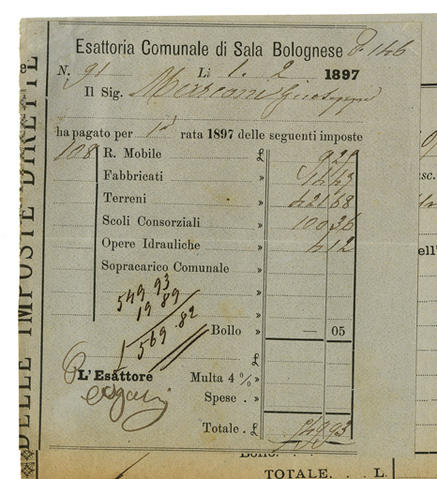 Esattoria Comunale di Sala Bolognese F. 146
N. 91 Li 1. 2 1897
Il Sig. Marconi Giuseppe
ha pagato per 1ª rata 1897 delle seguenti imposte
108 R. Mobile £ 9 29
Fabbricati » 14 43
Terreni » 421 68
Scoli Consorziali » 100 36
Opere Idrauliche » 4 12
Sopracarico Comunale »
549 93
19 89
£ 569.82
Bollo » — 05
L'Esattore
Multa 4 % »
Spese . »
Totale . £ 549 93
DELLE IMPOSTE DIRETTE
TOTALE. . . L.